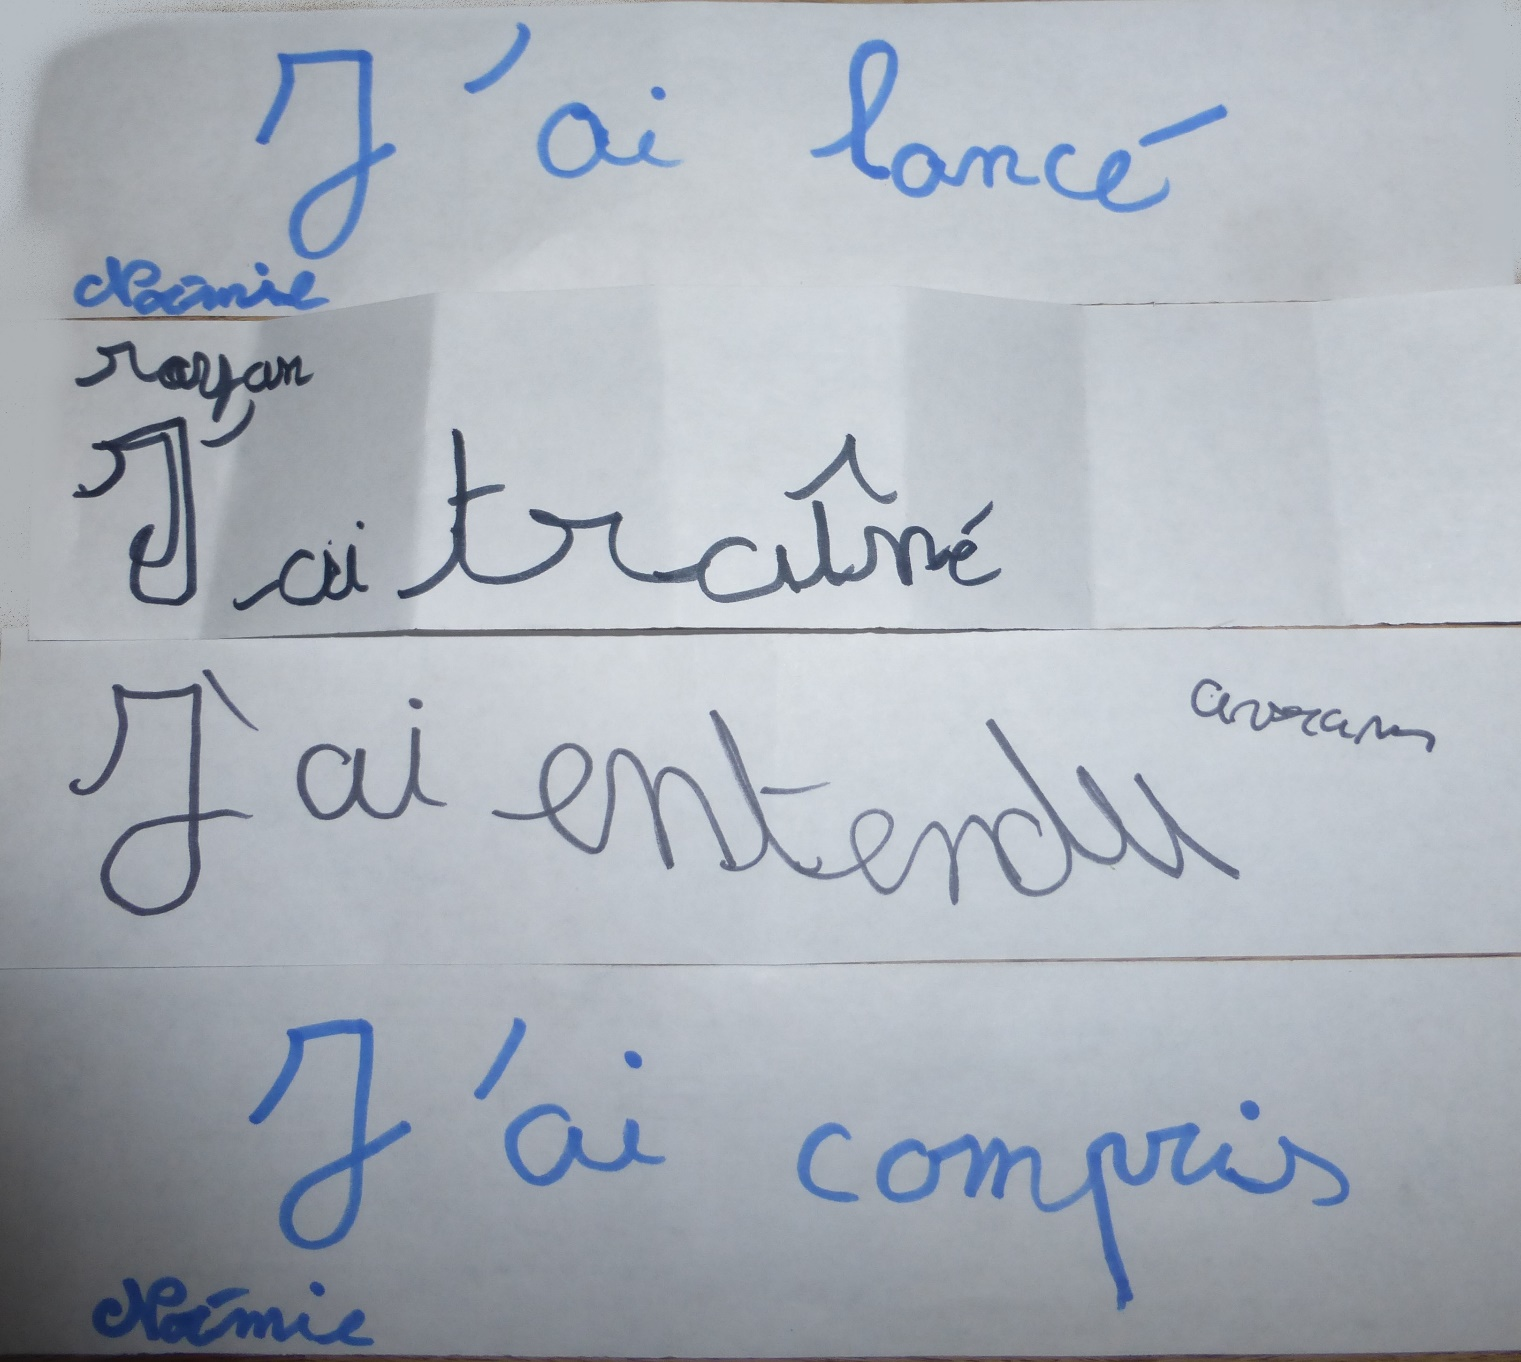 J'ai lancé
Noémie
rayan
J'ai traîné
avram
J'ai entendu
J'ai compris
Noémie